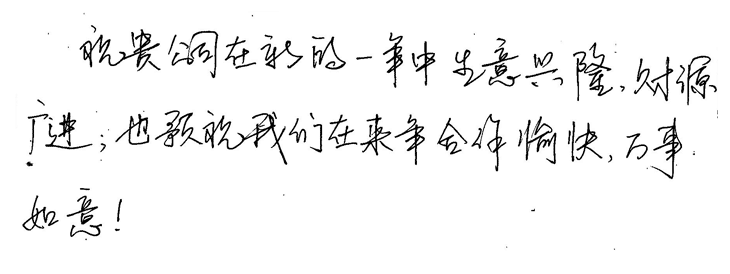 祝贵公司在新的一年中生意兴隆，财源
广进；也预祝我们在来年合作愉快，万事
如意！